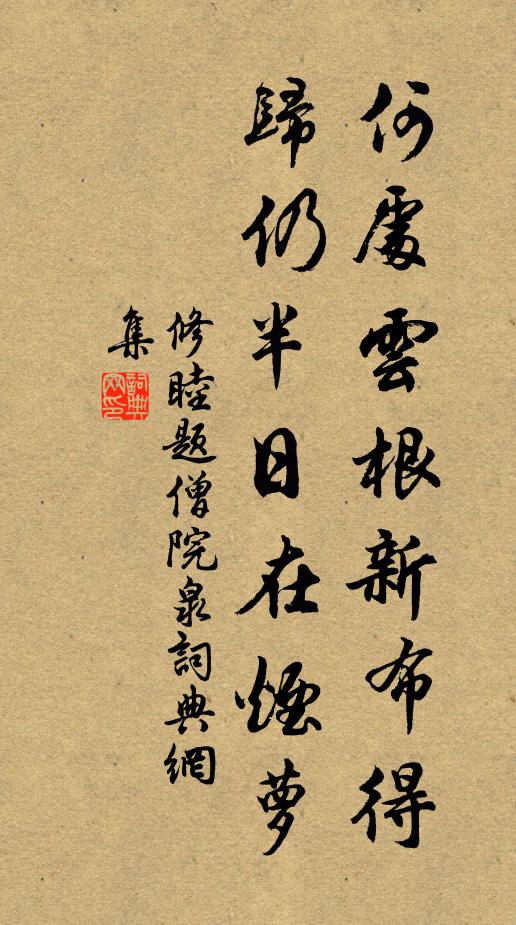 何處雲根新布得
歸仍半日在煙夢
修睦題僧院泉詞典網
集
詞典網印